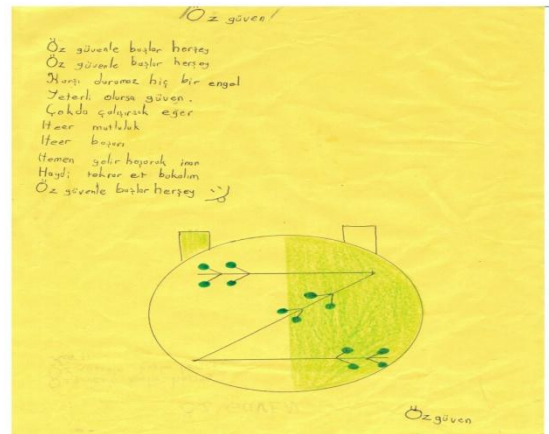 Öz güven!
Öz güvenle başlar herşey
Öz güvenle başlar herşey
Karşı duramaz hiç bir engel
Yeterli olursa güven.
Çokda çalışırsak eğer
Heer mutluluk
Heer başarı
Hemen gelir koşarak inan
Haydi tekrar et bakalım
Öz güvenle başlar herşey
Öz güven